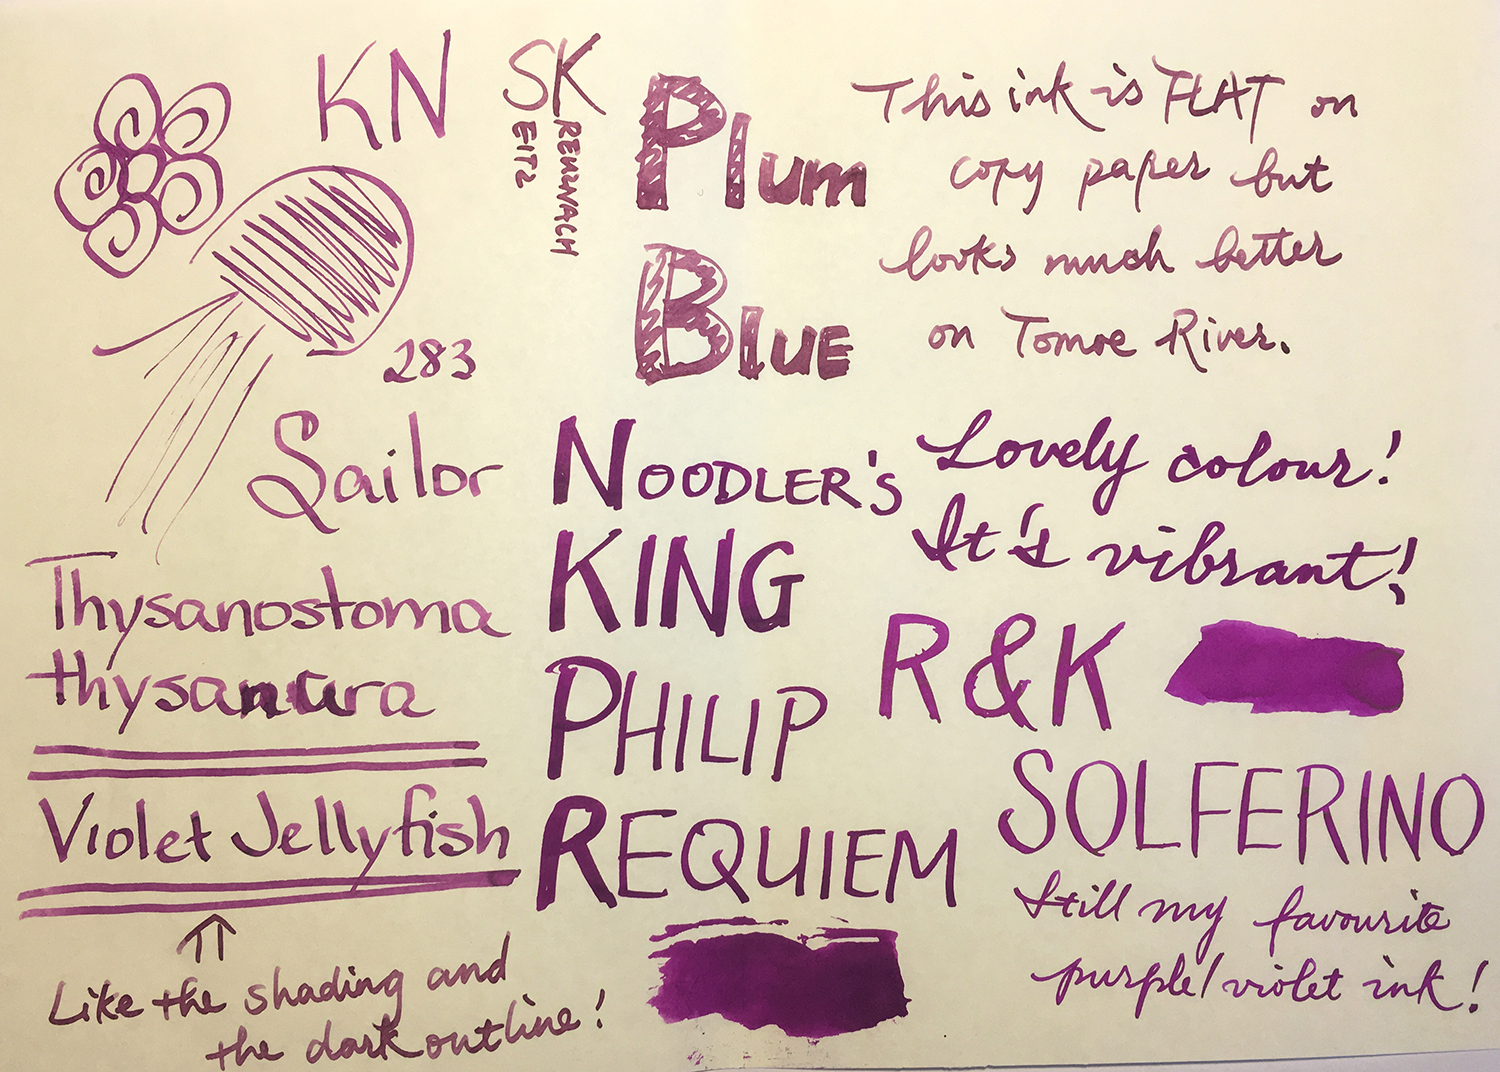 KN
283
Sailor
Thysanostoma
thysanura
Violet Jellyfish
Like the shading and
the dark outline!
SK
EITZ
REMZWACH
Plum
Blue
This ink is FLAT on
copy paper but
looks much better
on Tomoe River.
Noodler's
KING
PHILIP
REQUIEM
Lovely colour!
It's vibrant!
R&K
SOLFERINO
Still my favourite
purple/violet ink!